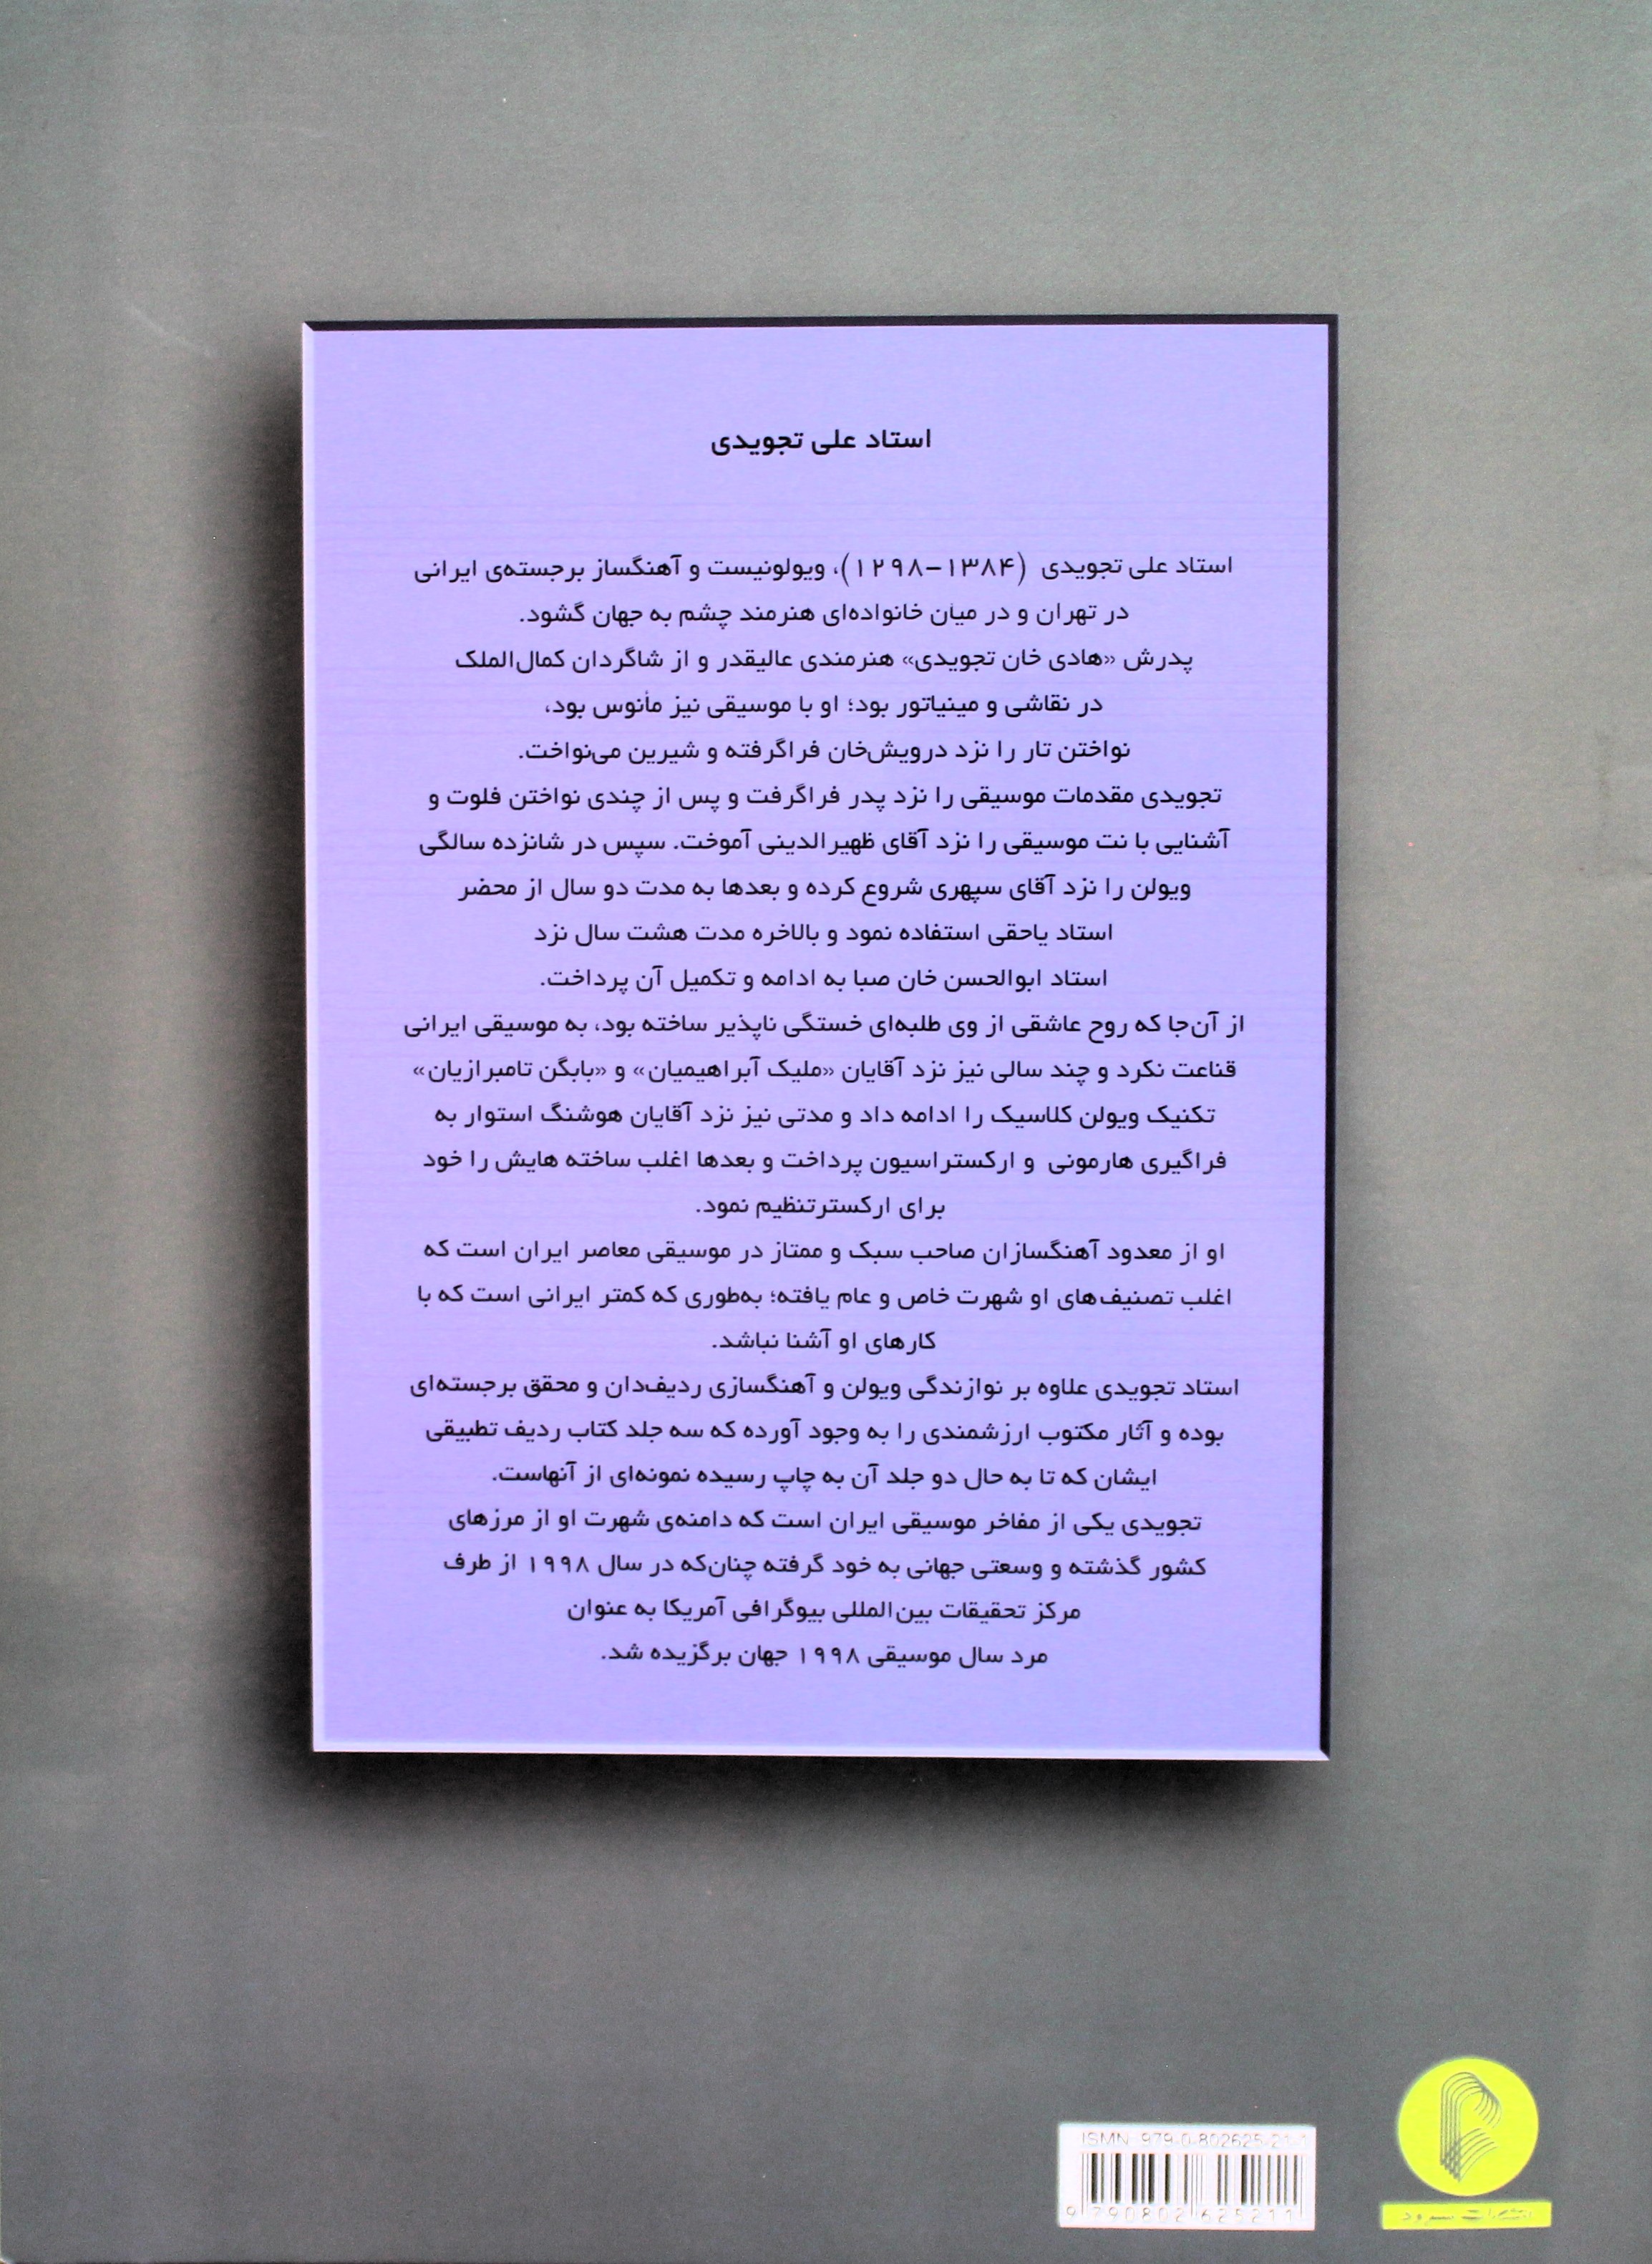 استاد علی تجویدی
استاد علی تجویدی (۱۳۸۴–۱۲۹۸)، ویولونیست و آهنگساز برجسته‌ی ایرانی
در تهران و در میان خانواده‌ای هنرمند چشم به جهان گشود.
پدرش «هادی خان تجویدی» هنرمندی عالیقدر و از شاگردان کمال‌الملک
در نقاشی و مینیاتور بود؛ او با موسیقی نیز مأنوس بود،
نواختن تار را نزد درویش‌خان فراگرفته و شیرین می‌نواخت.
تجویدی مقدمات موسیقی را نزد پدر فراگرفت و پس از چندی نواختن فلوت و
آشنایی با نت موسیقی را نزد آقای ظهیرالدینی آموخت. سپس در شانزده سالگی
ویولن را نزد آقای سپهری شروع کرده و بعدها به مدت دو سال از محضر
استاد یاحقی استفاده نمود و بالاخره مدت هشت سال نزد
استاد ابوالحسن خان صبا به ادامه و تکمیل آن پرداخت.
از آن‌جا که روح عاشقی از وی طلبه‌ای خستگی ناپذیر ساخته بود، به موسیقی ایرانی
قناعت نکرد و چند سالی نیز نزد آقایان «ملیک آبراهیمیان» و «بابگن تامبرازیان»
تکنیک ویولن کلاسیک را ادامه داد و مدتی نیز نزد آقایان هوشنگ استوار به
فراگیری هارمونی و ارکستراسیون پرداخت و بعدها اغلب ساخته هایش را خود
برای ارکسترتنظیم نمود.
او از معدود آهنگسازان صاحب سبک و ممتاز در موسیقی معاصر ایران است که
اغلب تصنیف‌های او شهرت خاص و عام یافته؛ به‌طوری که کمتر ایرانی است که با
کارهای او آشنا نباشد.
استاد تجویدی علاوه بر نوازندگی ویولن و آهنگسازی ردیف‌دان و محقق برجسته‌ای
بوده و آثار مکتوب ارزشمندی را به وجود آورده که سه جلد کتاب ردیف تطبیقی
ایشان که تا به حال دو جلد آن به چاپ رسیده نمونه‌ای از آنهاست.
تجویدی یکی از مفاخر موسیقی ایران است که دامنه‌ی شهرت او از مرزهای
کشور گذشته و وسعتی جهانی به خود گرفته چنان‌که در سال ۱۹۹۸ از طرف
مرکز تحقیقات بین‌المللی بیوگرافی آمریکا به عنوان
مرد سال موسیقی ۱۹۹۸ جهان برگزیده شد.
ISMN 979-0-802625-21-1
9 790802 625211
انتشارات سرود